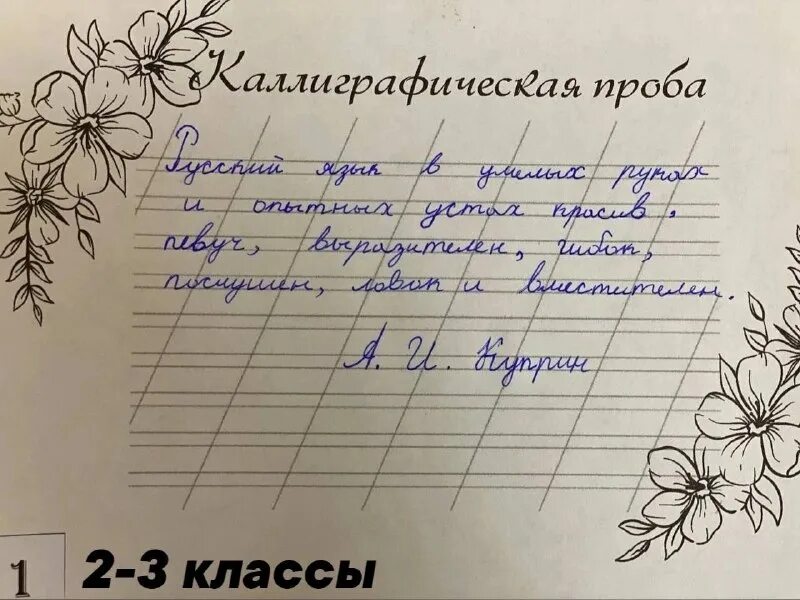 Каллиграфическая проба
Русский язык в умелых руках
и опытных устах красив,
певуч, выразителен, гибок,
послушен, ловок и вместителен.
А. И. Куприн
1
2-3 классы